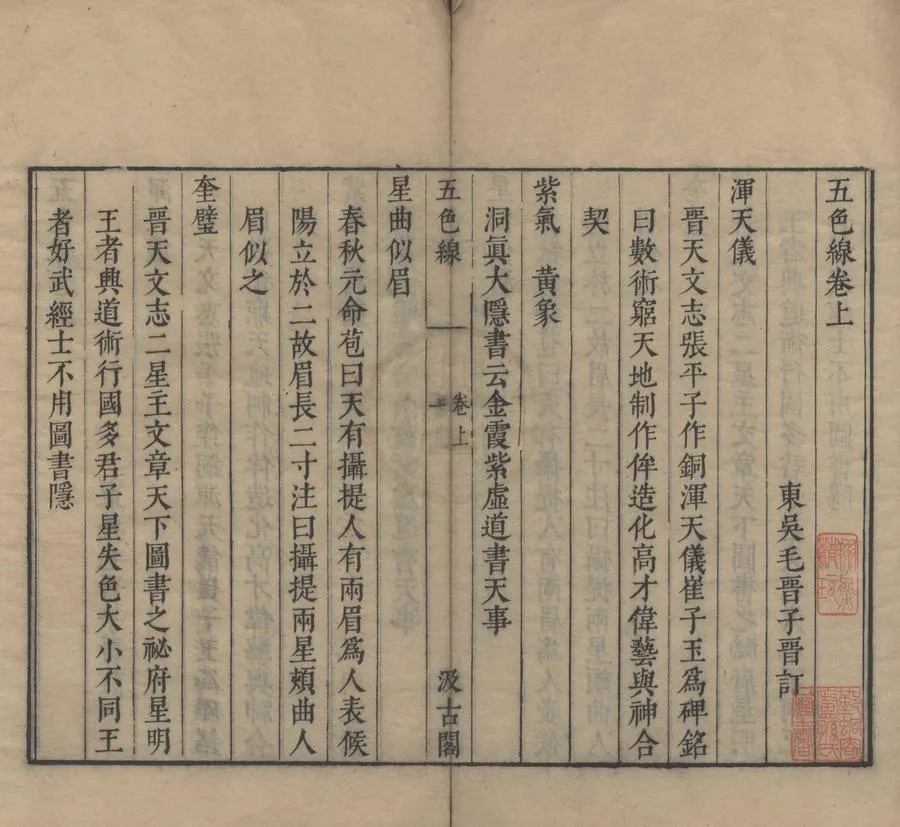 五色線卷上
東吳毛晉子晉訂
渾天儀
晉天文志張平子作銅渾天儀崔子玉爲碑銘
曰數術窮天地制作侔造化高才偉藝與神合
契
紫氣　黃象
洞眞大隱書云金霞紫虛道書天事
五色線　卷上　一　汲古閣
星曲似眉
春秋元命苞曰天有攝提人有兩眉爲人表候
陽立於二故眉長二寸注曰攝提兩星頻曲人
眉似之
奎璧
晉天文志二星主文章天下圖書之祕府星明
王者興道術行國多君子星失色大小不同王
者好武經士不用圖書隱